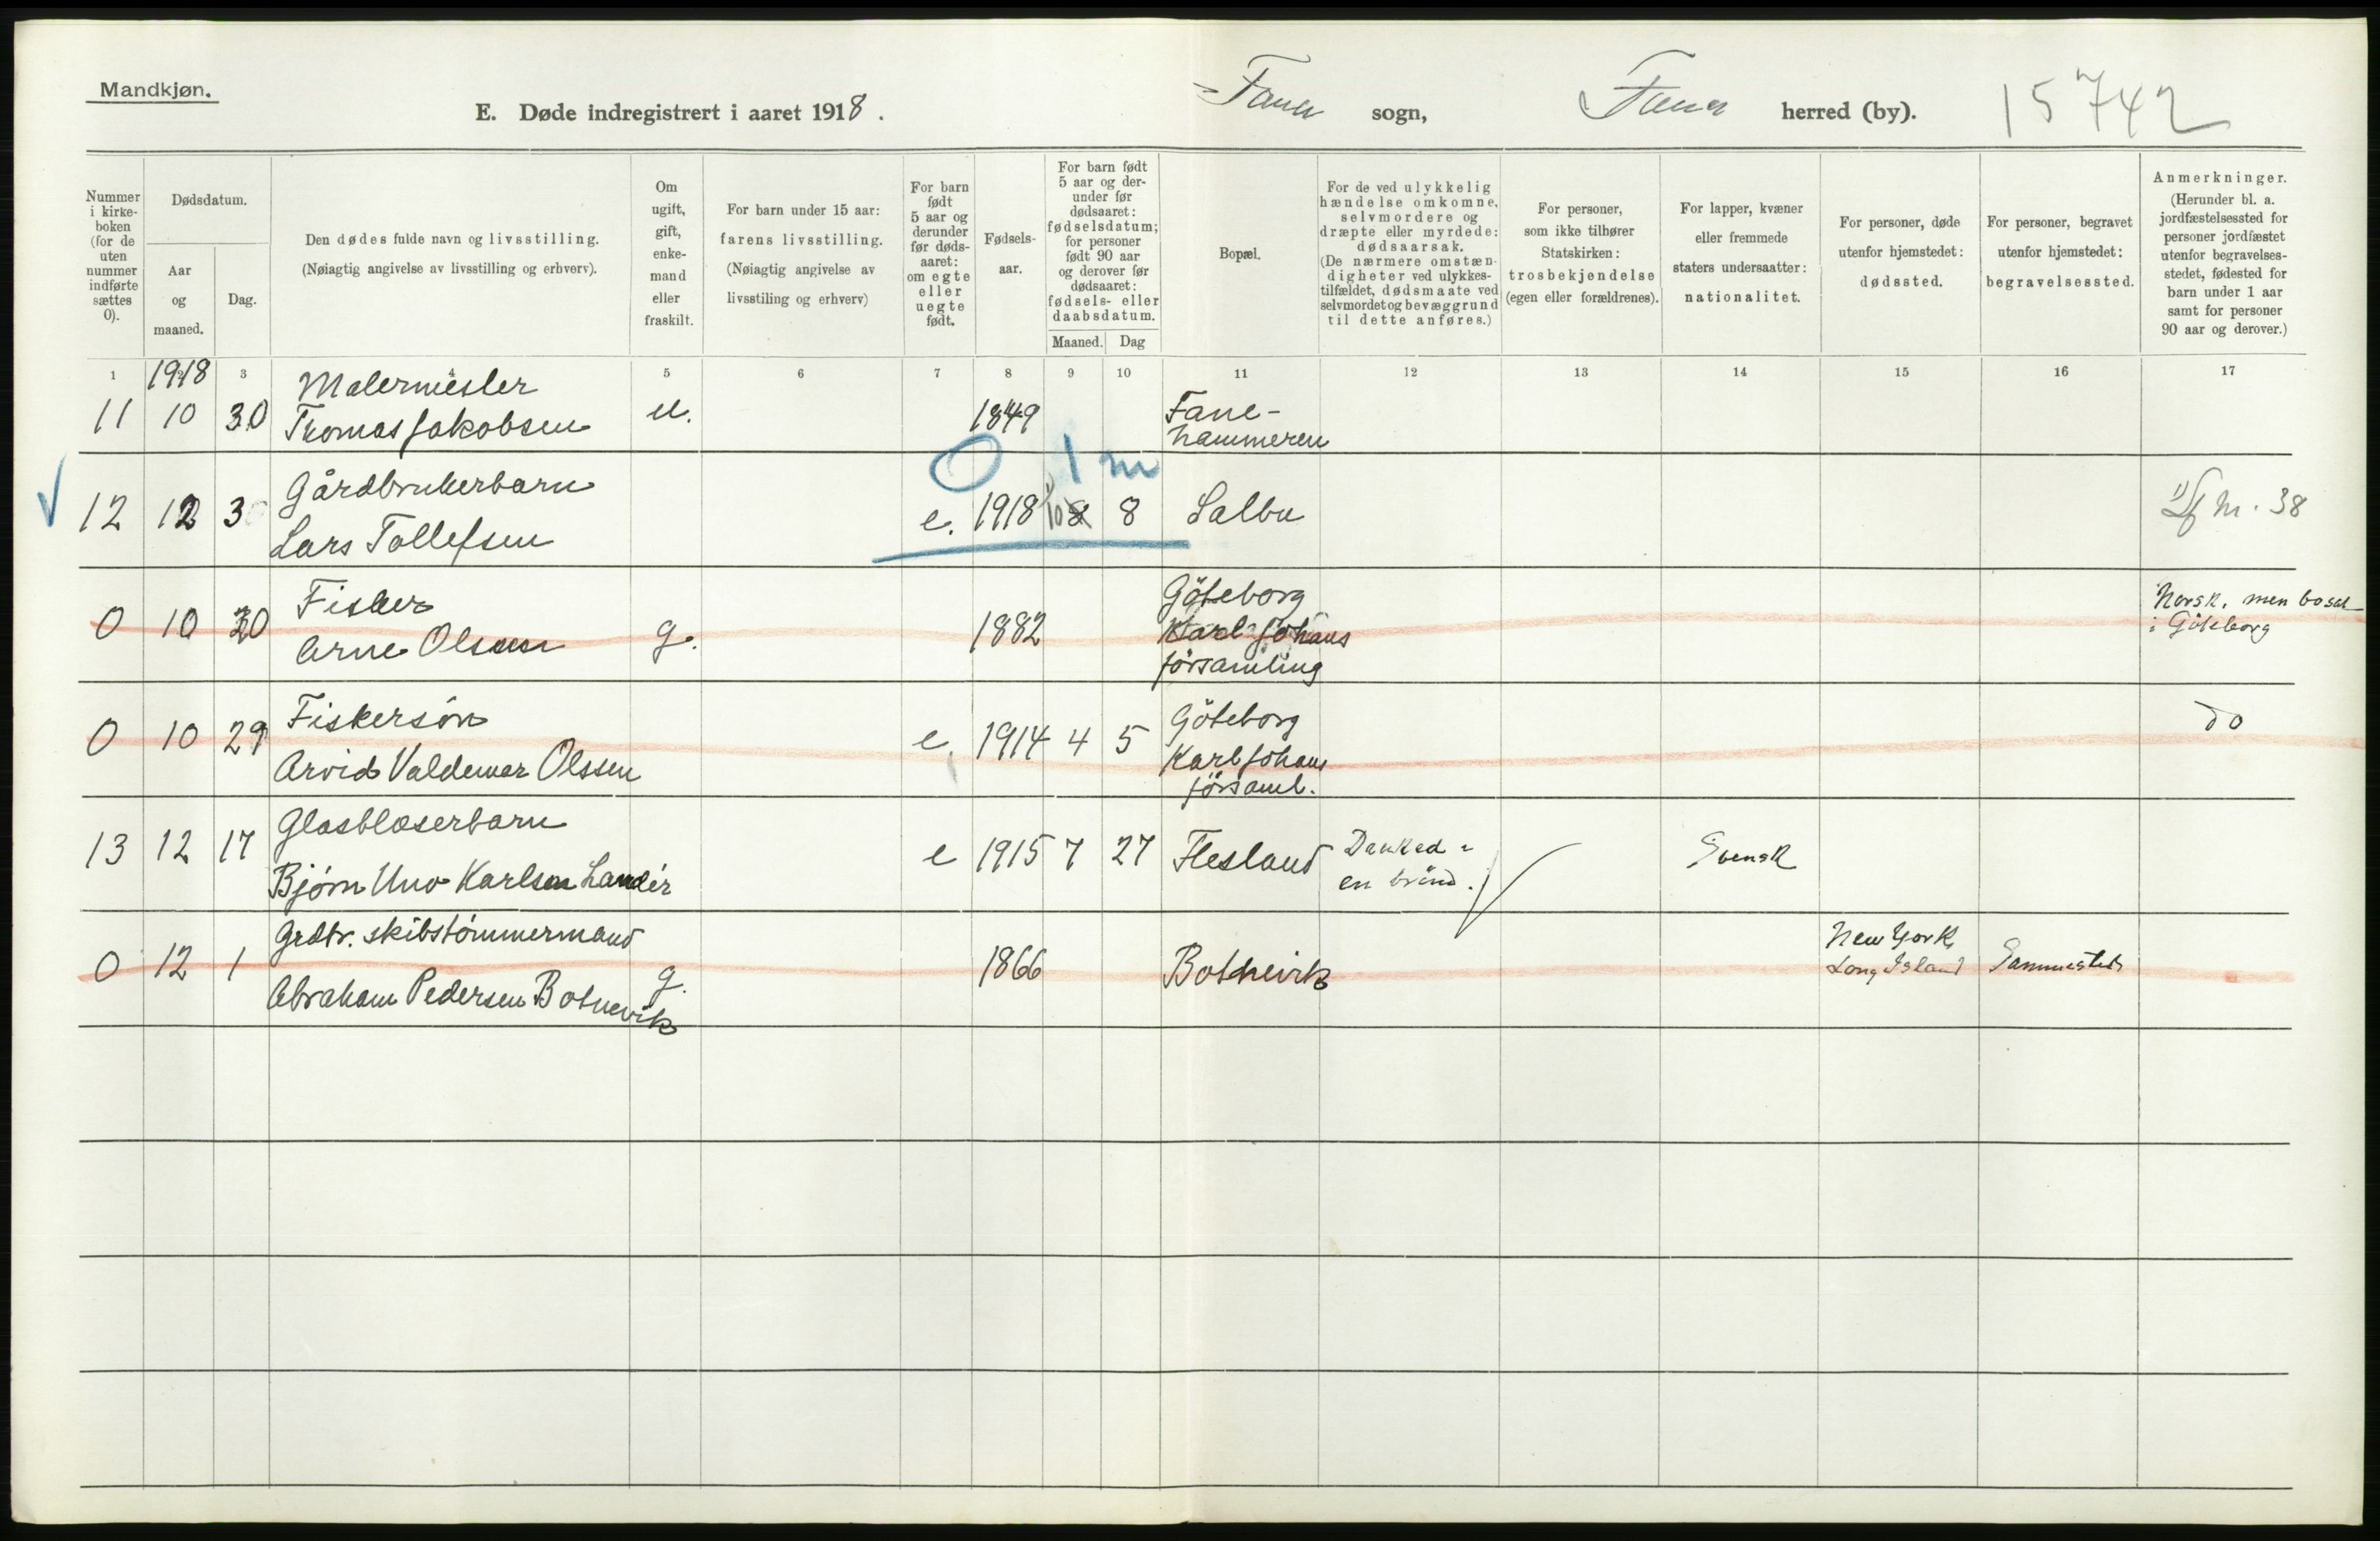 Mandkjøn.
E. Døde indregistrert i aaret 1918. Fana sogn, Fana herred (by). 15742
Nummer i kirke-boken (for de uten nummer indførte sættes 0).
Dødsdatum.
Aar og maaned.
Dag.
Den dødes fulde navn og livsstilling.
(Nøiagtig angivelse av livsstilling og erhverv).
Om ugift, gift, enke-mand eller fraskilt.
For barn under 15 aar:
farens livsstilling.
(Nøiagtig angivelse av
livsstiling og erhverv)
For barn født 5 aar og derunder før døds-aaret: om egte eller uegte født.
Fødsels-aar.
For barn født 5 aar og der-under før dødsaaret: fødselsdatum; for personer født 90 aar og derover før dødsaaret: fødsels- eller daabsdatum.
Maaned. Dag
Bopæl.
For de ved ulykkelig hændelse omkomne, selvmordere og dræpte eller myrdede: dødsaarsak.
(De nærmere omstæn-digheter ved ulykkes-tilfældet, dødsmaate ved selvmordet og bevæggrund til dette anføres.)
For personer, som ikke tilhører Statskirken: trosbekjendelse (egen eller forældrenes).
For lapper, kvæner eller fremmede staters undersaatter: nationalitet.
For personer, døde utenfor hjemstedet: dødssted.
For personer, begravet utenfor hjemstedet: begravelsessted.
Anmerkninger.
(Herunder bl. a. jordfæstelsessted for personer jordfæstet utenfor begravelses-stedet, fødested for barn under 1 aar samt for personer 90 aar og derover.)
1 1918 3 5 6 7 8 9 10 11 12 13 14 15 16 17
Malermester
11 10 30 Thomas Jakobsen u. 1849 Fane-
hammeren
0 1 m
Gårdbrukerbarn
12 12 3 Lars Tollefsen e. 1918 10 8 8 Salbu m. 38
Fisker Göteborg Norsk, men bosat
0 10 30 Arne Olsen g. 1882 Karl Johans i Göteborg
församling
Fiskersön Göteborg do
0 10 29 Arvid Valdemar Olssen e. 1914 4 5 Karl Johans
församl.
Glasblaserbarn
13 12 17 Bjørn Uno Karlson Landér e 1915 7 27 Flesland Svensk
en brönd.
Grdbr. skibstömmermand New York
0 12 1 Abraham Pedersen Botnevik g. 1866 Botnevik Long Island Sammesteds